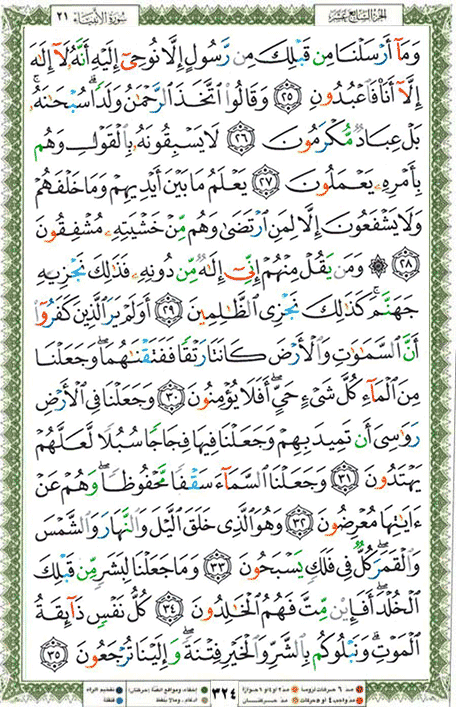 سُورَةُ الأَنبيَاء ٢١
الجزء السابع عشر
وَمَآ أَرْسَلْنَا مِن قَبْلِكَ مِن رَّسُولٍ إِلَّا نُوحِىٓ إِلَيْهِ أَنَّهُۥ لَآ إِلَٰهَ
إِلَّآ أَنَا۠ فَٱعْبُدُونِ ٢٥ وَقَالُوا۟ ٱتَّخَذَ ٱلرَّحْمَٰنُ وَلَدًا ۗ سُبْحَٰنَهُۥ ۚ
بَلْ عِبَادٌ مُّكْرَمُونَ ٢٦ لَا يَسْبِقُونَهُۥ بِٱلْقَوْلِ وَهُم
بِأَمْرِهِۦ يَعْمَلُونَ ٢٧ يَعْلَمُ مَا بَيْنَ أَيْدِيهِمْ وَمَا خَلْفَهُمْ
وَلَا يَشْفَعُونَ إِلَّا لِمَنِ ٱرْتَضَىٰ وَهُم مِّنْ خَشْيَتِهِۦ مُشْفِقُونَ
٢٨ ۞ وَمَن يَقُلْ مِنْهُمْ إِنِّىٓ إِلَٰهٌ مِّن دُونِهِۦ فَذَٰلِكَ نَجْزِيهِ
جَهَنَّمَ ۚ كَذَٰلِكَ نَجْزِى ٱلظَّٰلِمِينَ ٢٩ أَوَلَمْ يَرَ ٱلَّذِينَ كَفَرُوٓا۟
أَنَّ ٱلسَّمَٰوَٰتِ وَٱلْأَرْضَ كَانَتَا رَتْقًا فَفَتَقْنَٰهُمَا ۖ وَجَعَلْنَا
مِنَ ٱلْمَآءِ كُلَّ شَىْءٍ حَىٍّ ۖ أَفَلَا يُؤْمِنُونَ ٣٠ وَجَعَلْنَا فِى ٱلْأَرْضِ
رَوَٰسِىَ أَن تَمِيدَ بِهِمْ وَجَعَلْنَا فِيهَا فِجَاجًا سُبُلًا لَّعَلَّهُمْ
يَهْتَدُونَ ٣١ وَجَعَلْنَا ٱلسَّمَآءَ سَقْفًا مَّحْفُوظًا ۖ وَهُمْ عَنْ
ءَايَٰتِهَا مُعْرِضُونَ ٣٢ وَهُوَ ٱلَّذِى خَلَقَ ٱلَّيْلَ وَٱلنَّهَارَ وَٱلشَّمْسَ
وَٱلْقَمَرَ ۖ كُلٌّ فِى فَلَكٍ يَسْبَحُونَ ٣٣ وَمَا جَعَلْنَا لِبَشَرٍ مِّن قَبْلِكَ
ٱلْخُلْدَ ۖ أَفَإِي۟ن مِّتَّ فَهُمُ ٱلْخَٰلِدُونَ ٣٤ كُلُّ نَفْسٍ ذَآئِقَةُ
ٱلْمَوْتِ ۗ وَنَبْلُوكُم بِٱلشَّرِّ وَٱلْخَيْرِ فِتْنَةً ۖ وَإِلَيْنَا تُرْجَعُونَ ٣٥
٣٢٤